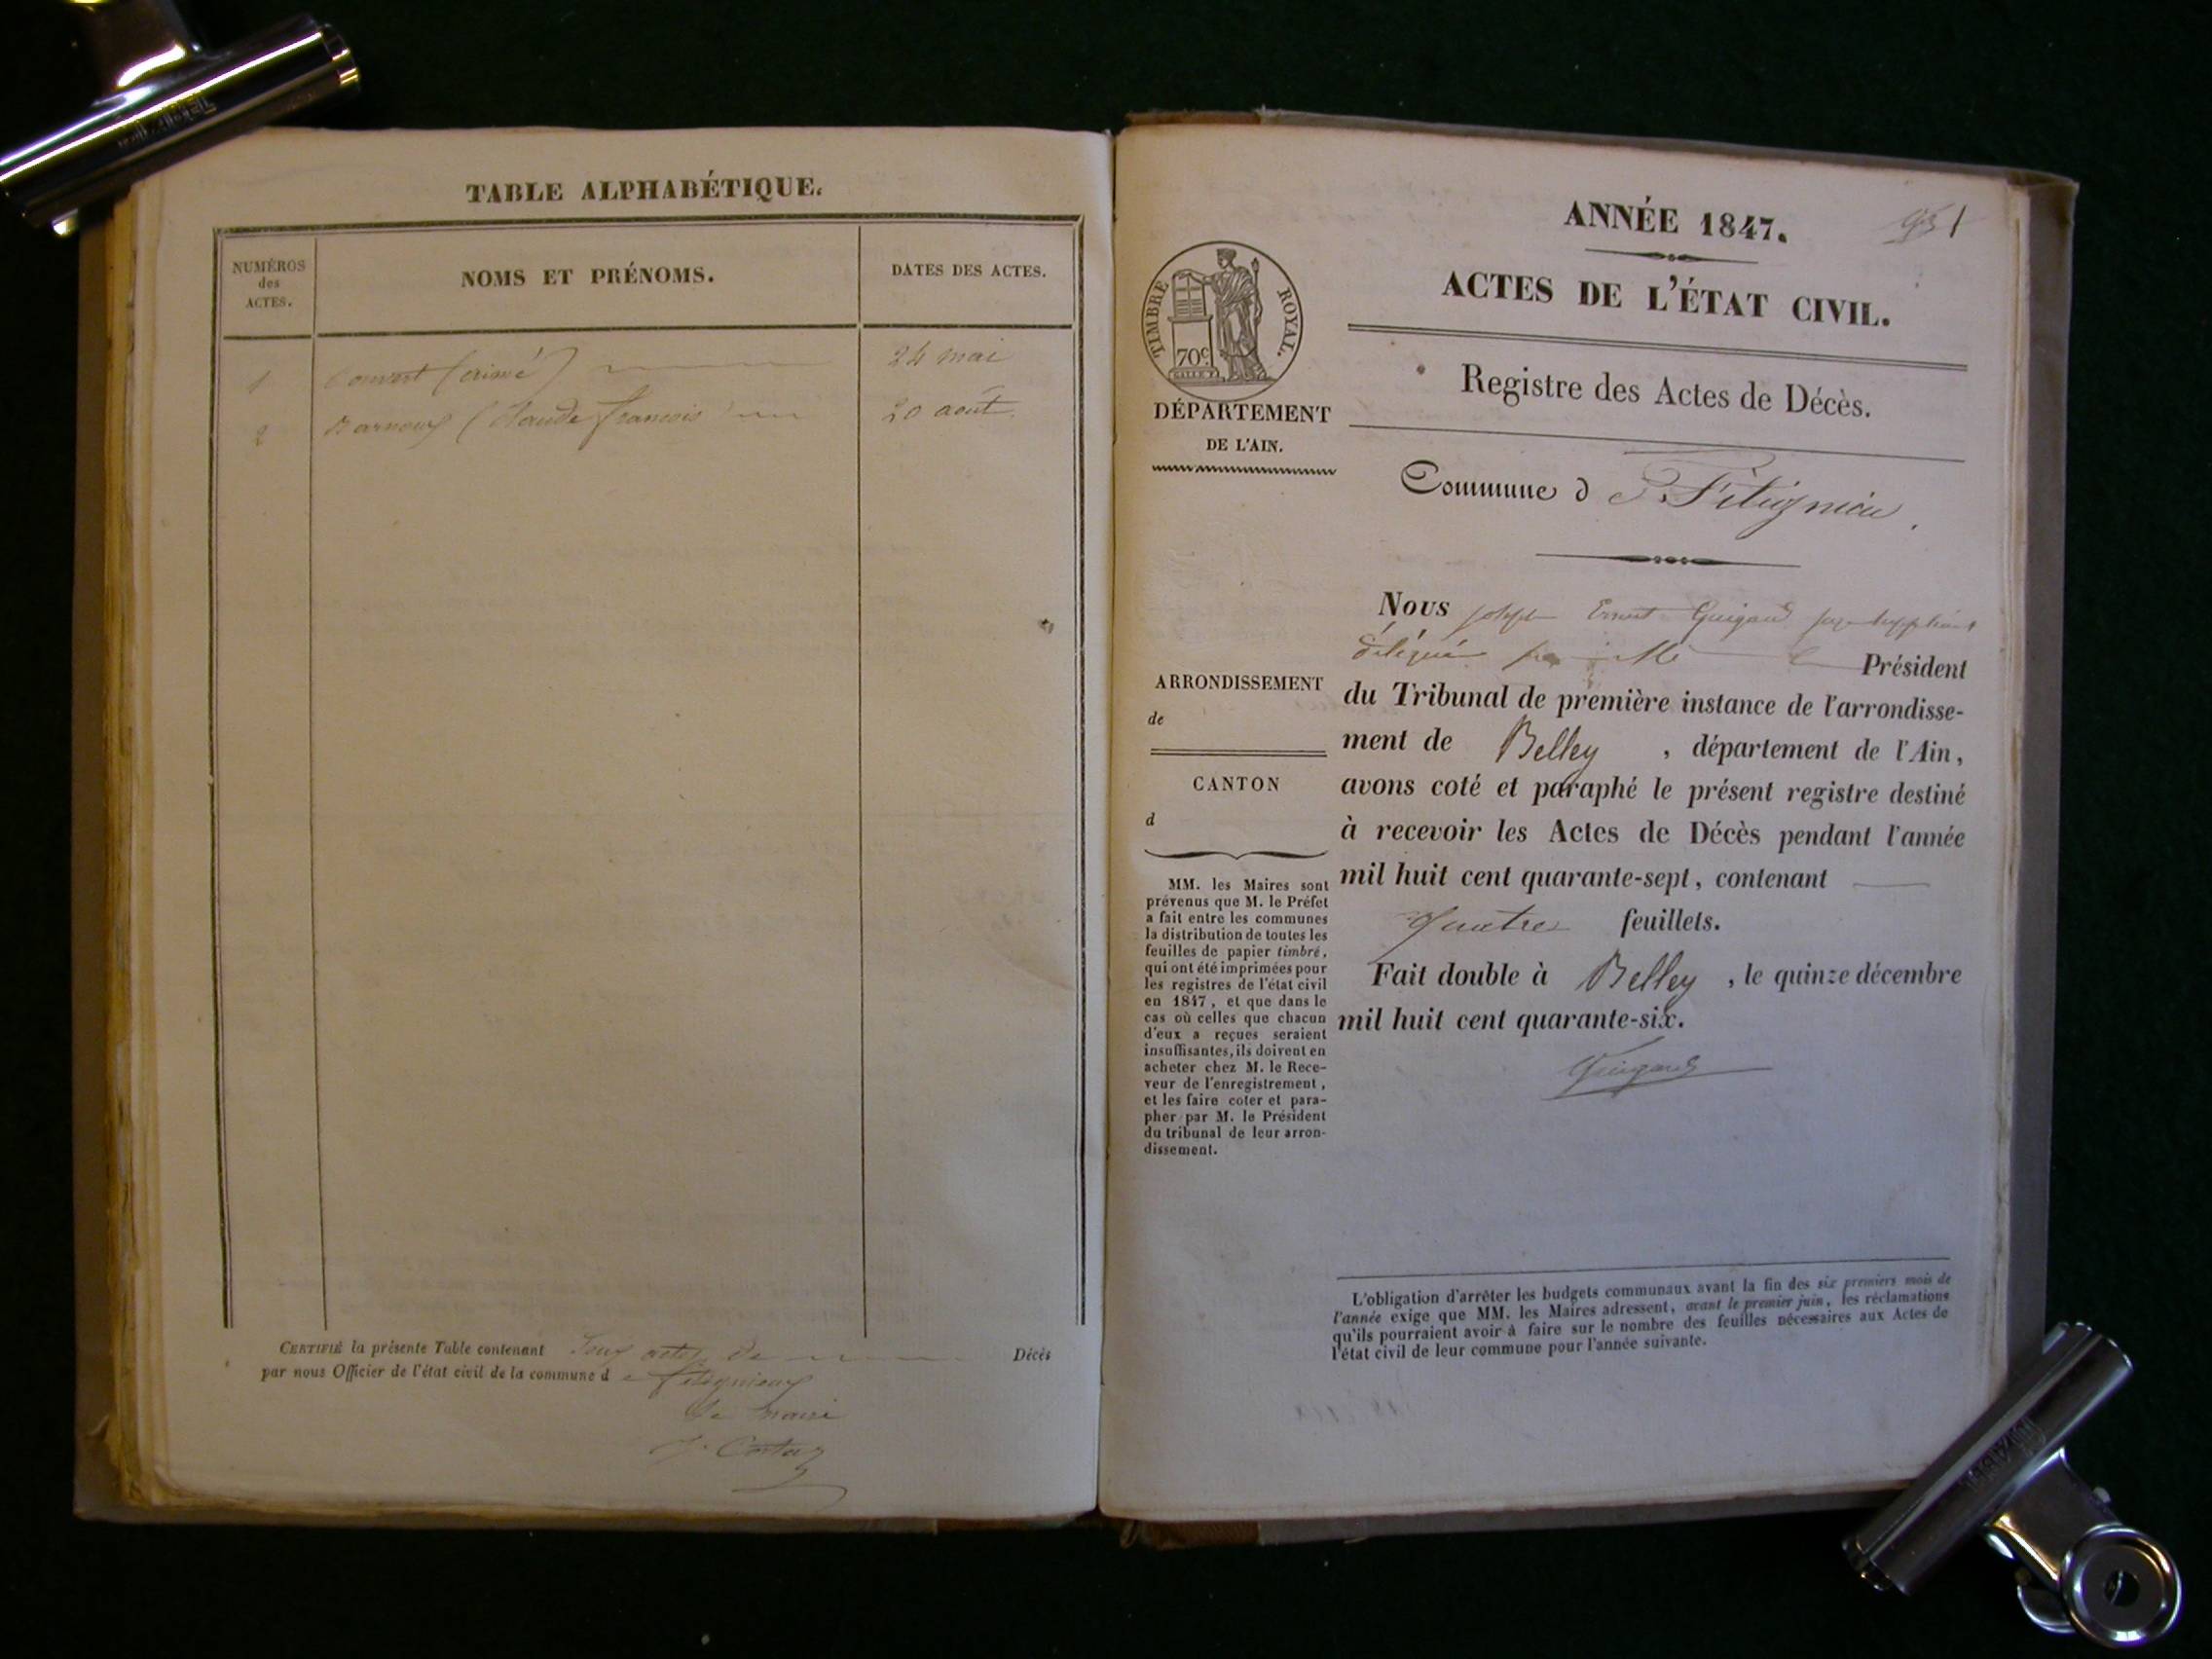 TABLE ALPHABÉTIQUE.
NUMÉROS
des
ACTES.
NOMS ET PRÉNOMS.
DATES DES ACTES.
1 24 mai
2 Claude François 20 août
CERTIFIÉ la présente Table contenant Deux actes de Décès
par nous Officier de l'état civil de la commune d
Le maire
ANNÉE 1847.
ACTES DE L'ÉTAT CIVIL.
TIMBRE ROYAL.
70c
Registre des Actes de Décès.
DÉPARTEMENT
DE L'AIN.
Commune d
Nous Joseph Ernest Guigard juge suppléant
délégué par Mr le Président
ARRONDISSEMENT
de
CANTON
d
du Tribunal de première instance de l'arrondisse-
ment de Belley , département de l'Ain,
avons coté et paraphé le présent registre destiné
à recevoir les Actes de Décès pendant l'année
mil huit cent quarante-sept, contenant
quatre feuillets.
Fait double à Belley , le quinze décembre
mil huit cent quarante-six.
Guigard
MM. les Maires sont
prévenus que M. le Préfet
a fait entre les communes
la distribution de toutes les
feuilles de papier timbré,
qui ont été imprimées pour
les registres de l'état civil
en 1847, et que dans le
cas où celles que chacun
d'eux a reçues seraient
insuffisantes, ils doivent en
acheter chez M. le Rece-
veur de l'enregistrement,
et les faire coter et para-
pher par M. le Président
du tribunal de leur arron-
dissement.
L'obligation d'arrêter les budgets communaux avant la fin des six premiers mois de
l'année exige que MM. les Maires adressent, avant le premier juin, les réclamations
qu'ils pourraient avoir à faire sur le nombre des feuilles nécessaires aux Actes de
l'état civil de leur commune pour l'année suivante.